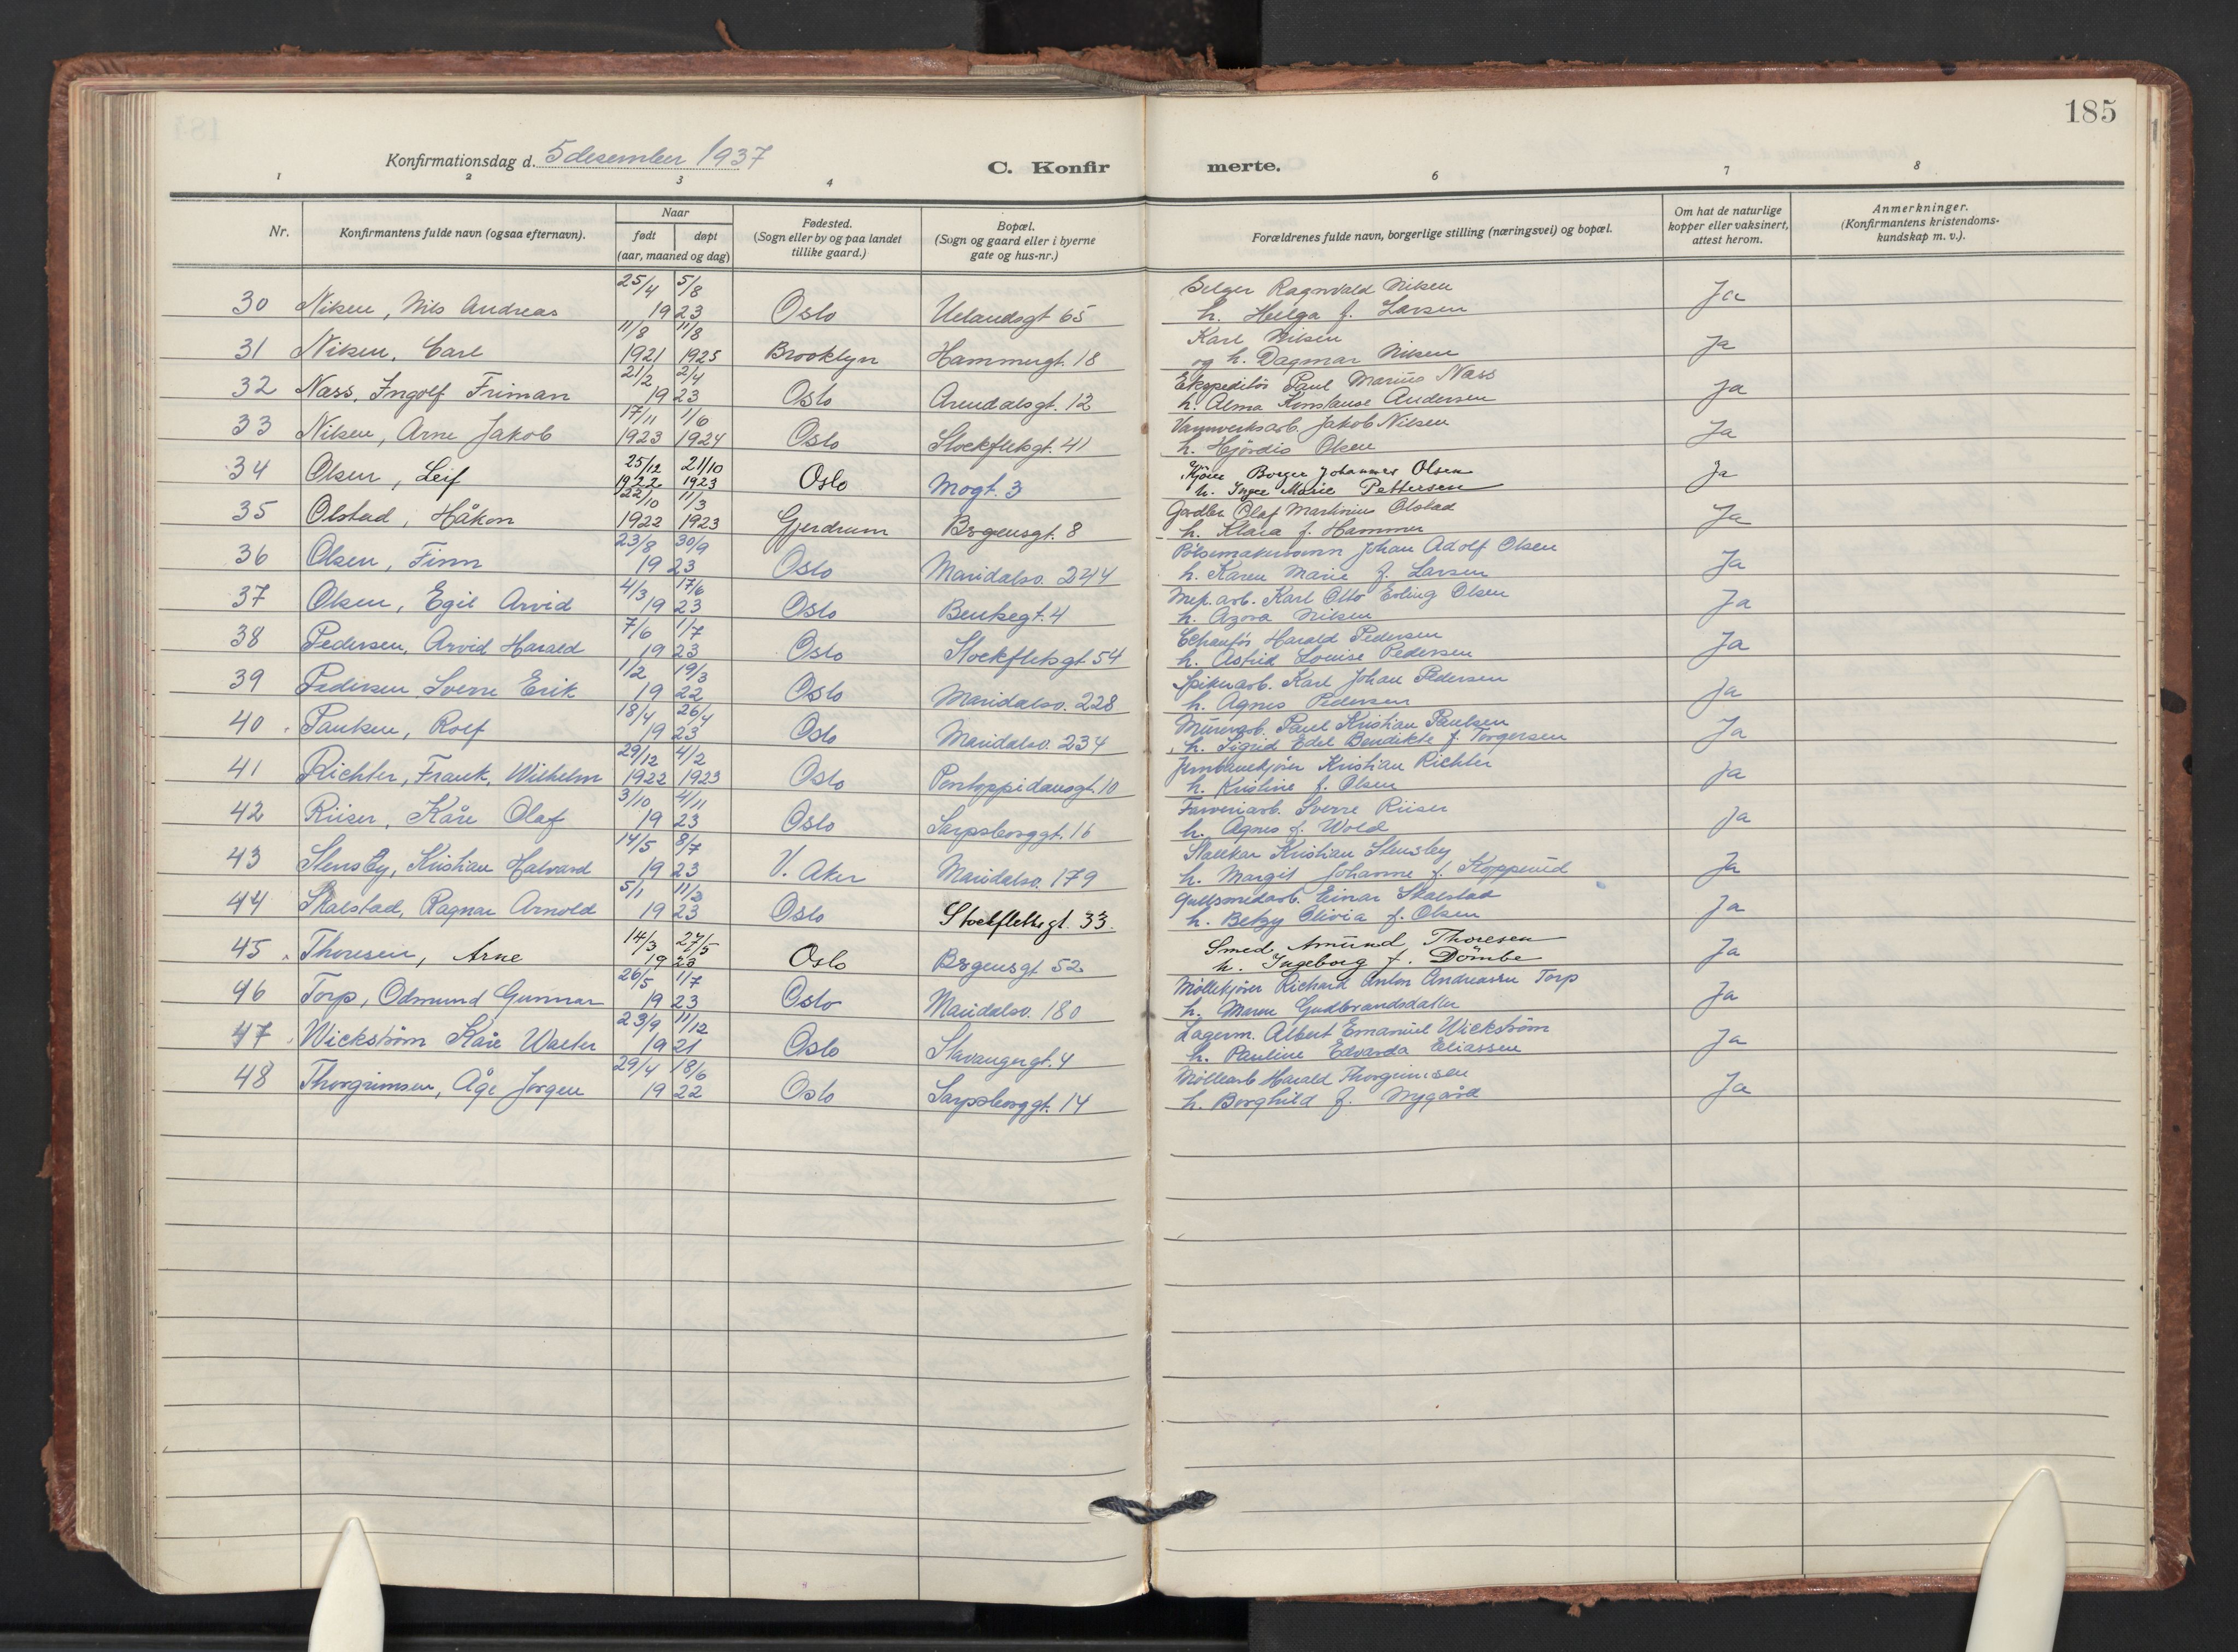 185
Konfirmationsdag d. 5 desember 1937
C. Konfirmerte.
1 2 3 4 6 7 8
Nr.
Konfirmantens fulde navn (ogsaa efternavn).
Naar
født døpt
(aar, maaned og dag)
Fødested.
(Sogn eller by og paa landet
tillike gaard.)
Bopæl.
(Sogn og gaard eller i byerne
gate og hus-nr.)
Forældrenes fulde navn, borgerlige stilling (næringsvei) og bopæl.
Om hat de naturlige
kopper eller vaksinert,
attest herom.
Anmerkninger.
(Konfirmantens kristendoms-
kundskap m. v.).
25/4 5/8 Selger Ragnvald Nilsen
30 Nilsen, Nils Andreas 1923 Oslo Uelandsgt 65 h. Helga f. Larsen Ja
11/8 11/8 Karl Nilsen
31 Nilsen, Carl 1921 1925 Brooklyn Hammergt. 18 og h. Dagmar Nilsen Ja
21/2 2/4 Ekspeditør Paul Marius Næss
32 Næss, Ingolf Friman 1923 Oslo Arendalsgt. 12 h. Alma Konstanse Andersen Ja
17/11 1/6 Vannverksarb. Jakob Nilsen
33 Nilsen, Arne Jakob 1923 1924 Oslo Stockfletsgt. 41 h. Hjördis Olsen Ja
25/12 21/10 Kjörer Borger Johannes Olsen
34 Olsen, Leif 1922 1923 Oslo Mogt. 3 h. Inger Marie Pettersen Ja
22/10 11/3 Gördler Olaf Martinius Olstad
35 Olstad, Håkon 1922 1923 Gjerdrum Bergensgt. 8 h. Klara f. Hammer Ja
23/8 30/9 Pölsemakersvenn Johan Adolf Olsen
36 Olsen, Finn 1923 Oslo Maridalsv. 244 h. Karen Marie f. Larsen Ja
4/3 17/6 Mek. arb. Karl Otto Erling Olsen
37 Olsen, Egil Arvid 1923 Oslo Bentsegt. 4 h. Azora Nilsen Ja
7/6 1/7 Harald Pedersen
38 Pedersen, Arvid Harald 1923 Oslo Stockfletsgt. 54 h. Astrid Louise Pedersen Ja
1/2 19/3 Spikerarb. Karl Johan Pedersen
39 Pedersen Sverre Erik 1922 Oslo Maridalsv. 228 h. Agnes Pedersen Ja
18/4 26/4 Murerarb. Paul Kristian Paulsen
40 Paulsen, Rolf 1923 Oslo Maridalsv. 234 h. Sigrid Edel Bendikte f. Torgersen Ja
29/12 4/2 Jernbanekjörer Kristian Richter
41 Richter, Frank, Wilhelm 1922 1923 Oslo Pontoppidansgt. 10 h. Kristine f. Olsen Ja
3/10 4/11 Farveriarb. Sverre Riiser
42 Riiser, Kåre Olaf 1923 Oslo Sarpsborggt. 16 h. Agnes f. Wold Ja
14/5 8/7 Stallkar Kristian Stensby
43 Stensby, Kristian Halvard 1923 V. Aker Maridalsv. 179 h. Margit Johanne f. Kopperud Ja
5/1 11/3 Gullsmedarb. Einar Skalstad
44 Skalstad, Ragnar Arnold 1923 Oslo Stockfletts gt. 33. h. Betzy Olivia f. Olsen Ja
14/3 27/5 Smed Amund Thoresen
45 Thoresen, Arne 1923 Oslo Bergensgt 52 h. Ingeborg f. Dömbe Ja
26/5 1/7 Möllekjörer Richard Anton Andreassen Torp
46 Torp, Odmund Gunnar 1923 Oslo Maridalsv. 180 h. Maren Gudbrandsdatter Ja
23/9 11/12 Lagerm. Albert Emanuel Wickström
47 Wickström Kåre Walter 1921 Oslo Stavangergt. 4 h. Pauline Edvarda Eliassen Ja
29/4 18/6 Möllearb Harald Thorgrimsen
48 Thorgrimsen, Åge Jørgen 1922 Oslo Sarpsborggt. 14 h. Borghild f. Nygård Ja